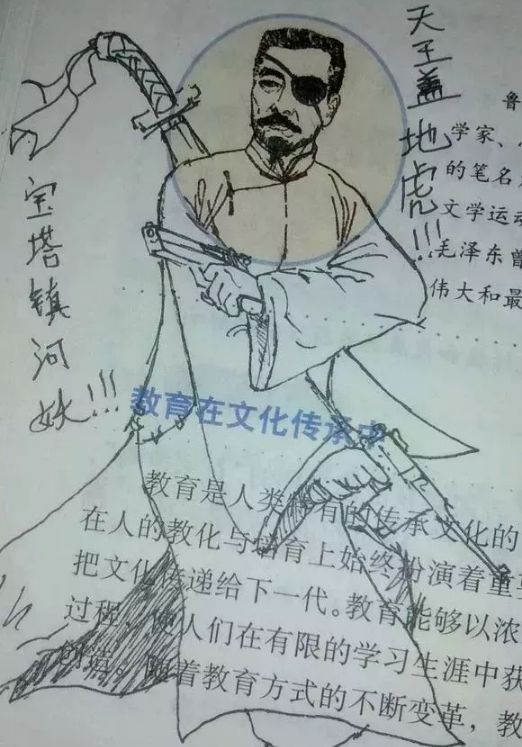 天王盖地虎!!!
宝塔镇河妖!!!
鲁
学家、
的笔名
文学运动
毛泽东曾
伟大和最
教育在文化传承中
教育是人类特有的传承文化的
在人的教化与培育上始终扮演着重
把文化传递给下一代。教育能够以浓
过程，使人们在有限的学习生涯中获
创造。随着教育方式的不断变革，教